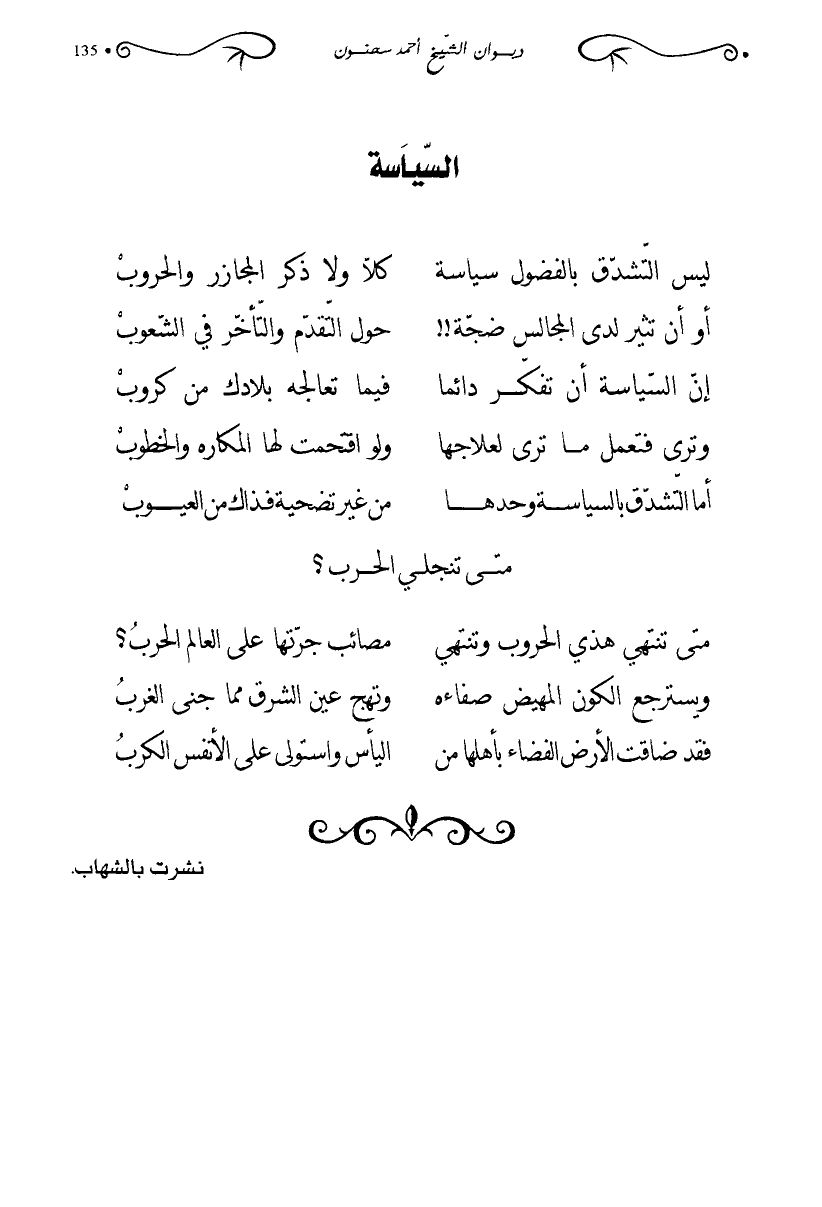 ديـوان الشّيخ أحمد سحنـون • 135
السِّيَاسة
ليس التّشدّق بالفضول سياسة كلاّ ولا ذكر المجازر والحروبْ
أو أن تثير لدى المجالس ضجّة!! حول التّقدّم والتّأخّر في الشّعوبْ
إنّ السّياسة أن تفكّـر دائما فيما تعالجه بلادك من كروبْ
وترى فتعمل مـا ترى لعلاجها ولو اقتحمت لها المكاره والخطوبْ
أما التّشدّق بالسياسـة وحدهـا من غير تضحية فذاك من العيـوبْ
متـى تنجلـي الحـرب؟
متى تنتهي هذي الحروب وتنتهي مصائب جرّتها على العالم الحربُ؟
ويسترجع الكون المهيض صفاءه وتهج عين الشرق مما جنى الغربُ
فقد ضاقت الأرض الفضاء بأهلها من اليأس واستولى على الأنفس الكربُ
نشرت بالشهاب.